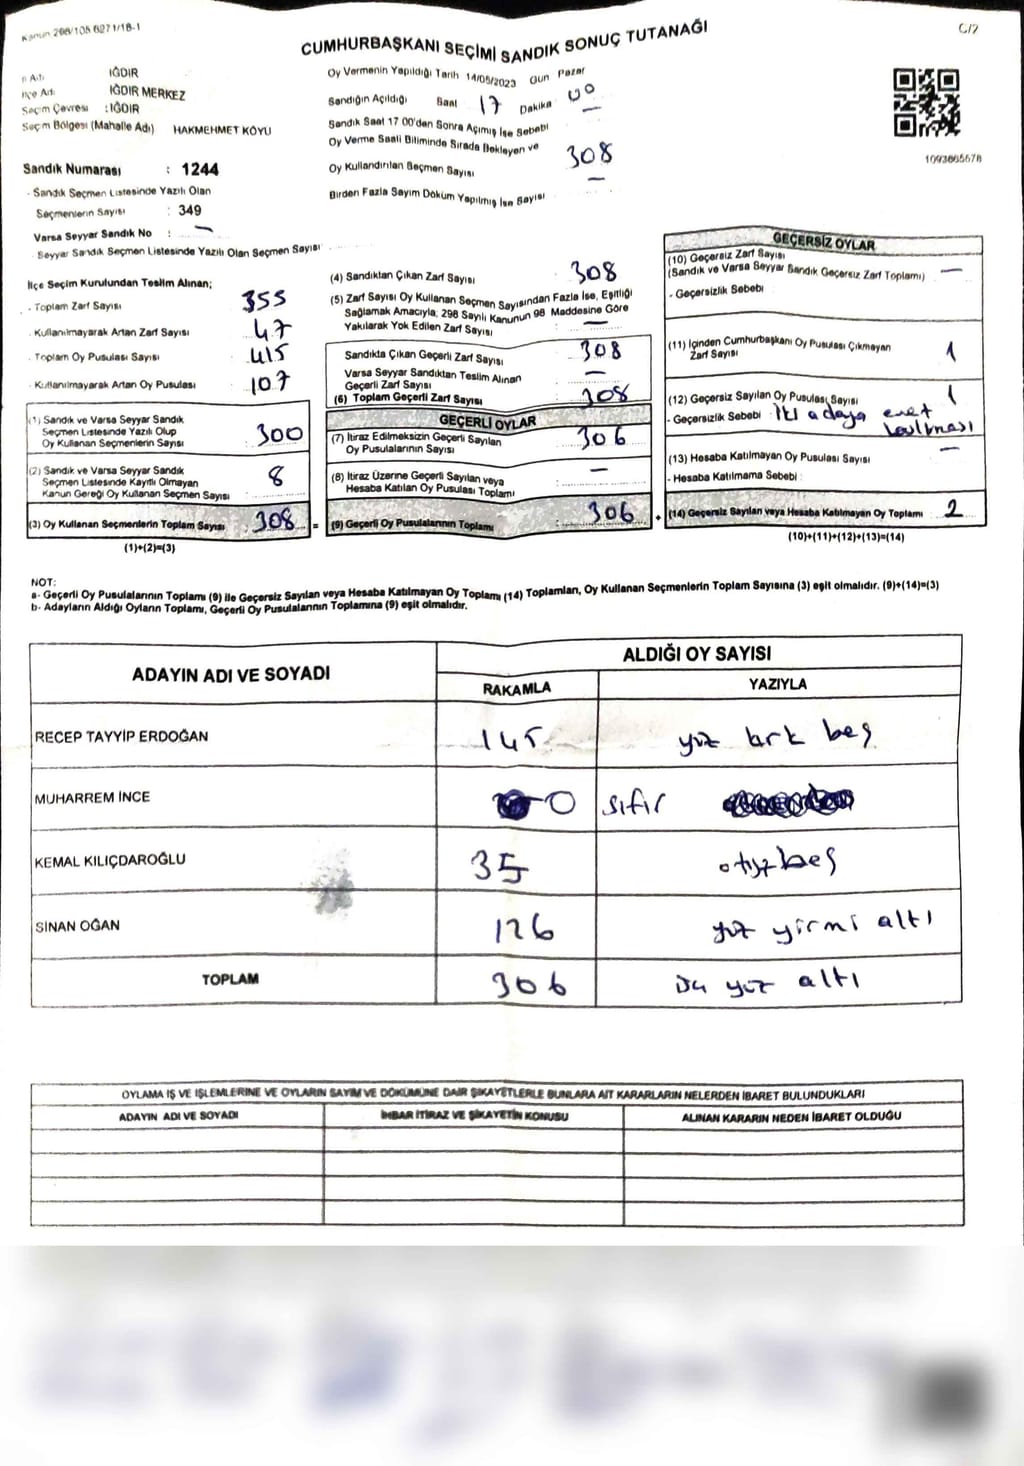 Kanun 298/105 6271/18-1
C/2
CUMHURBAŞKANI SEÇİMİ SANDIK SONUÇ TUTANAĞI
İl Adı IĞDIR
İlçe Adı IĞDIR MERKEZ
Seçim Çevresi : IĞDIR
Seçim Bölgesi (Mahalle Adı) HAKMEHMET KÖYÜ
Sandık Numarası : 1244
- Sandık Seçmen Listesinde Yazılı Olan
Seçmenlerin Sayısı : 349
Varsa Seyyar Sandık No : —
- Seyyar Sandık Seçmen Listesinde Yazılı Olan Seçmen Sayısı
Oy Vermenin Yapıldığı Tarih 14/05/2023 Gün Pazar
Sandığın Açıldığı Saat 17 Dakika 00
Sandık Saat 17 00'den Sonra Açımış İse Sebebi —
Oy Verme Saati Bitiminde Sırada Bekleyen ve
Oy Kullandırılan Seçmen Sayısı 308
Birden Fazla Sayım Döküm Yapılmış İse Sayısı —
1093865578
İlçe Seçim Kurulundan Teslim Alınan;
- Toplam Zarf Sayısı : 355
- Kullanılmayarak Artan Zarf Sayısı : 47
- Toplam Oy Pusulası Sayısı : 415
- Kullanılmayarak Artan Oy Pusulası : 107
(1) Sandık ve Varsa Seyyar Sandık
Seçmen Listesinde Yazılı Olup
Oy Kullanan Seçmenlerin Sayısı : 300
(2) Sandık ve Varsa Seyyar Sandık
Seçmen Listesinde Kayıtlı Olmayan
Kanun Gereği Oy Kullanan Seçmen Sayısı : 8
(3) Oy Kullanan Seçmenlerin Toplam Sayısı : 308 =
(1)+(2)=(3)
(4) Sandıktan Çıkan Zarf Sayısı : 308
(5) Zarf Sayısı Oy Kullanan Seçmen Sayısından Fazla İse, Eşitliği
Sağlamak Amacıyla, 298 Sayılı Kanunun 98 Maddesine Göre
Yakılarak Yok Edilen Zarf Sayısı : —
Sandıkta Çıkan Geçerli Zarf Sayısı : 308
Varsa Seyyar Sandıktan Teslim Alınan
Geçerli Zarf Sayısı : —
(6) Toplam Geçerli Zarf Sayısı : 308
GEÇERLİ OYLAR
(7) İtiraz Edilmeksizin Geçerli Sayılan
Oy Pusulalarının Sayısı : 306
(8) İtiraz Üzerine Geçerli Sayılan veya
Hesaba Katılan Oy Pusulası Toplamı : —
(9) Geçerli Oy Pusulalarının Toplamı : 306 +
GEÇERSİZ OYLAR
(10) Geçersiz Zarf Sayısı
(Sandık ve Varsa Seyyar Sandık Geçersiz Zarf Toplamı) —
- Geçersizlik Sebebi :
(11) İçinden Cumhurbaşkanı Oy Pusulası Çıkmayan
Zarf Sayısı : 1
(12) Geçersiz Sayılan Oy Pusulası Sayısı : 1
- Geçersizlik Sebebi : İki adaya evet
basılması
(13) Hesaba Katılmayan Oy Pusulası Sayısı : —
- Hesaba Katılmama Sebebi :
(14) Geçersiz Sayılan veya Hesaba Katılmayan Oy Toplamı : 2
(10)+(11)+(12)+(13)=(14)
NOT:
a- Geçerli Oy Pusulalarının Toplamı (9) ile Geçersiz Sayılan veya Hesaba Katılmayan Oy Toplamı (14) Toplamları, Oy Kullanan Seçmenlerin Toplam Sayısına (3) eşit olmalıdır. (9)+(14)=(3)
b- Adayların Aldığı Oyların Toplamı, Geçerli Oy Pusulalarının Toplamına (9) eşit olmalıdır.
ADAYIN ADI VE SOYADI ALDIĞI OY SAYISI
RAKAMLA YAZIYLA
RECEP TAYYİP ERDOĞAN 145 yüz kırk beş
MUHARREM İNCE 0 sıfır
KEMAL KILIÇDAROĞLU 35 otuz beş
SİNAN OĞAN 126 yüz yirmi altı
TOPLAM 306 üç yüz altı
OYLAMA İŞ VE İŞLEMLERİNE VE OYLARIN SAYIM VE DÖKÜMÜNE DAİR ŞİKAYETLERLE BUNLARA AİT KARARLARIN NELERDEN İBARET BULUNDUKLARI
ADAYIN ADI VE SOYADI İHBAR İTİRAZ VE ŞİKAYETİN KONUSU ALINAN KARARIN NEDEN İBARET OLDUĞU